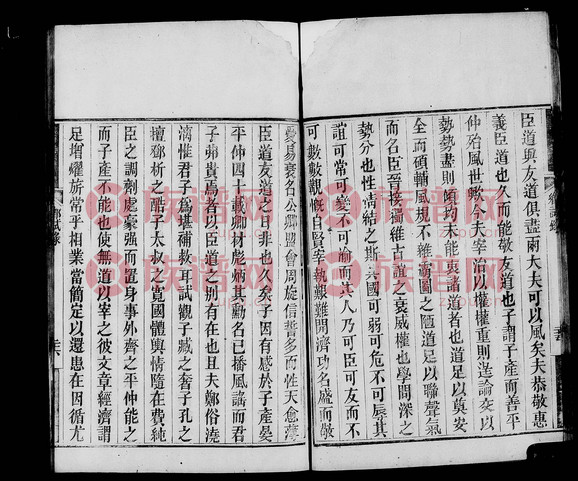 臣道與友道俱盡兩大夫可以風矣夫恭敬惠
義臣道也久而能敬友道也子謂子產而善平
仲殆風世歟今夫宰治以權權重則遑論交以
勢勢盡則傾均未能衷諸道者也道足以奠安
全而碩輔風規不雜霸圖之陋道足以聯聲氣
而名臣晉接獨維古誼之衰威權也學問深之
勢分也性情結之斯人國可弱可危不可辱其
誼可常可變不可渝而其人乃可臣可友而不
可數數觀慨自賢宰執艱難開濟功名盛而儆
易衰名公卿盟會周旋信誓多而性天愈薄
臣道友道之日非也久矣子因有感於子產晏
平仲四十載鄉材彪炳其勳名已播風謠而君
子弗貴焉者以臣道之別有在也且夫鄭俗澆
漓惟君子為堪補救耳試觀子臧之奢子孔之
擅鄧析之酷子太叔之寬國體輿情隨在費純
臣之調劑處豪强而置身事外齊之平仲能之
而子產不能也使無道以宰之彼文章經濟謂
足增耀旂常乎相業當簡定以還患在因循尤
鄉試錄
族譜網
zupu.cn